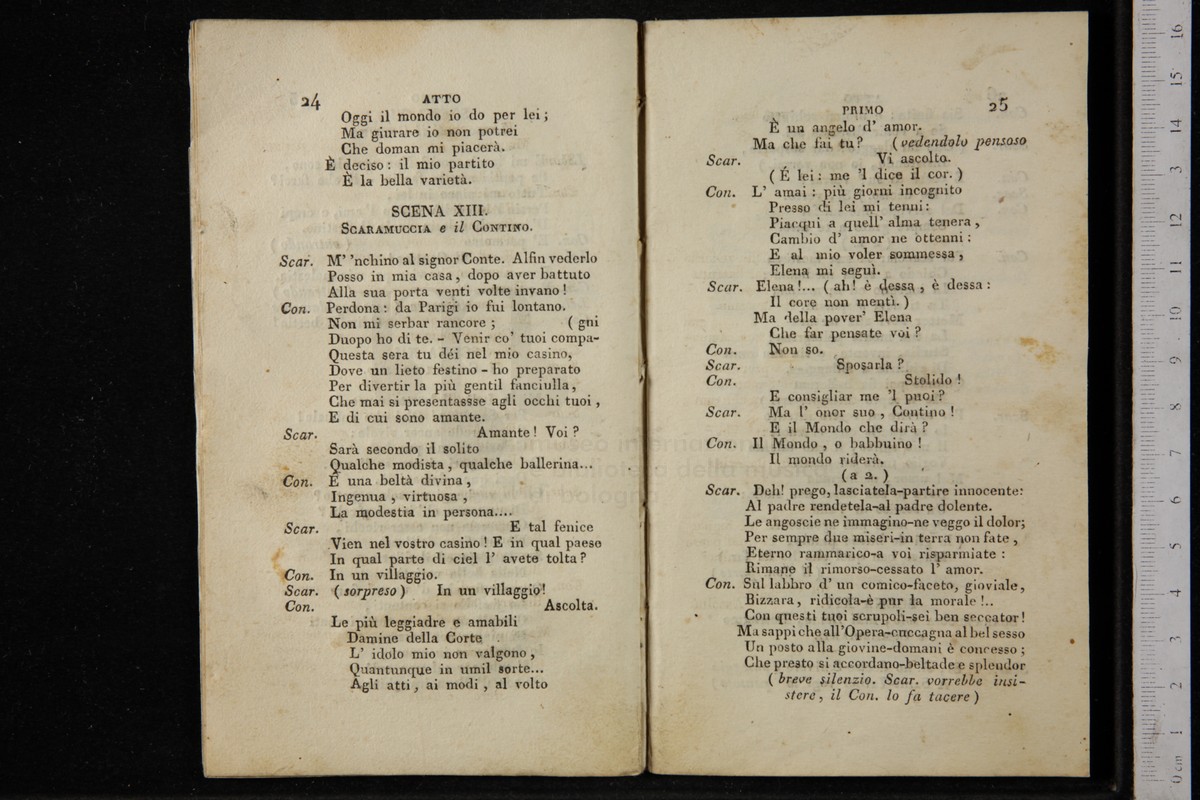 24 ATTO
Oggi il mondo io do per lei;
Ma giurare io non potrei
Che doman mi piacerà.
È deciso: il mio partito
È la bella varietà.
SCENA XIII.
SCARAMUCCIA e il CONTINO.
Scar. M' 'nchino al signor Conte. Alfin vederlo
Posso in mia casa, dopo aver battuto
Alla sua porta venti volte invano!
Con. Perdona: da Parigi io fui lontano.
Non mi serbar rancore; ( gni
Duopo ho di te. - Venir co' tuoi compa-
Questa sera tu déi nel mio casino,
Dove un lieto festino - ho preparato
Per divertir la più gentil fanciulla,
Che mai si presentassse agli occhi tuoi,
E di cui sono amante.
Scar. Amante! Voi?
Sarà secondo il solito
Qualche modista, qualche ballerina...
Con. È una beltà divina,
Ingenua, virtuosa,
La modestia in persona....
Scar. E tal fenice
Vien nel vostro casino! E in qual paese
In qual parte di ciel l' avete tolta?
Con. In un villaggio.
Scar. (sorpreso) In un villaggio!
Con. Ascolta.
Le più leggiadre e amabili
Damine della Corte
L' idolo mio non valgono,
Quantunque in umil sorte...
Agli atti, ai modi, al volto
PRIMO 25
È un angelo d' amor.
Ma che fai tu? (vedendolo pensoso
Scar. Vi ascolto.
( É lei: me 'l dice il cor. )
Con. L' amai: più giorni incognito
Presso di lei mi tenni:
Piacqui a quell' alma tenera,
Cambio d' amor ne ottenni:
E al mio voler sommessa,
Elena mi seguì.
Scar. Elena!... ( ah! è dessa, è dessa:
Il core non mentì. )
Ma della pover' Elena
Che far pensate voi?
Con. Non so.
Scar. Sposarla?
Con. Stolido!
E consigliar me 'l puoi?
Scar. Ma l' onor suo, Contino!
E il Mondo che dirà?
Con. Il Mondo, o babbuino!
Il mondo riderà.
(a 2.)
Scar. Deh! prego, lasciatela-partire innocente:
Al padre rendetela-al padre dolente.
Le angoscie ne immagino-ne veggo il dolor;
Per sempre due miseri-in terra non fate,
Eterno rammarico-a voi risparmiate:
Rimane il rimorso-cessato l' amor.
Con. Sul labbro d' un comico-faceto, gioviale,
Bizzara, ridicola-è pur la morale!..
Con questi tuoi scrupoli-sei ben seccator!
Ma sappi che all'Opera-cuccagna al bel sesso
Un posto alla giovine-domani è concesso;
Che presto si accordano-beltade e splendor
( breve silenzio. Scar. vorrebbe insi-
stere, il Con. lo fa tacere )
museo internazionale
biblioteca della musica
di bologna
0 cm 1 2 3 4 5 6 7 8 9 10 11 12 13 14 15 16